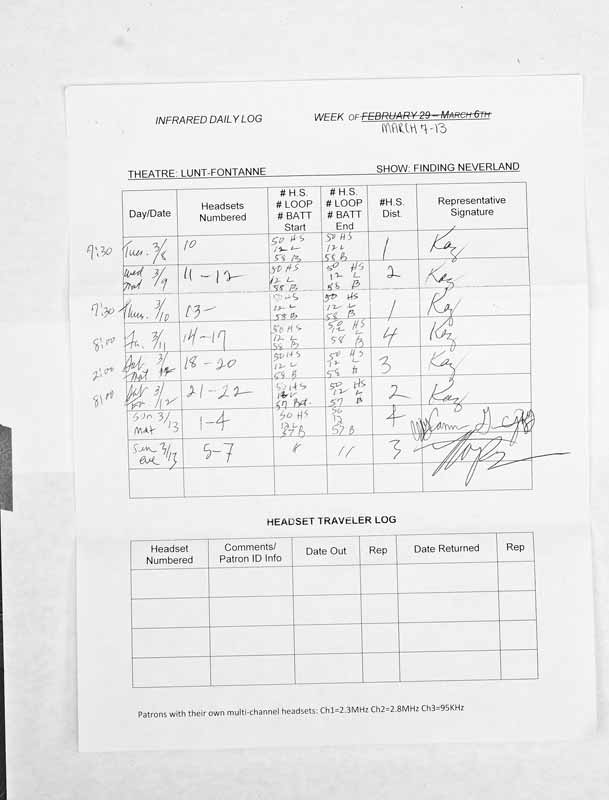 INFRARED DAILY LOG WEEK OF FEBRUARY 29 – MARCH 6TH
MARCH 7-13
THEATRE: LUNT-FONTANNE SHOW: FINDING NEVERLAND
Day/Date
Headsets
Numbered
# H.S.
# LOOP
# BATT
Start
# H.S.
# LOOP
# BATT
End
#H.S.
Dist.
Representative
Signature
7:30 Tues. 3/8
10
50 HS
12 L
58 B
50 HS
12 L
58 B
1
Kaz
Wed mat 3/9
11-12
50 HS
12 L
58 B
50 HS
12 L
58 B
2
Kaz
7:30 Thus. 3/10
13-
50 HS
12 L
58 B
50 HS
12 L
58 B
1
Kaz
8:00 Fri. 3/11
14-17
50 HS
12 L
58 B
50 HS
12 L
58 B
4
Kaz
2:00 Sat mat 3/12
18-20
50 HS
12 L
58 B
50 HS
12 L
58 B
3
Kaz
8:00 Sat 3/12
21-22
50 HS
12 L
57 Bat.
50 HS
12 L
57 B
2
Kaz
Sun 3/13
mat
1-4
50 HS
12 L
57 B
50
12
57 B
4
Sun 3/13
eve
5-7
"
"
3
HEADSET TRAVELER LOG
Headset
Numbered
Comments/
Patron ID Info
Date Out
Rep
Date Returned
Rep
Patrons with their own multi-channel headsets: Ch1=2.3MHz Ch2=2.8MHz Ch3=95KHz